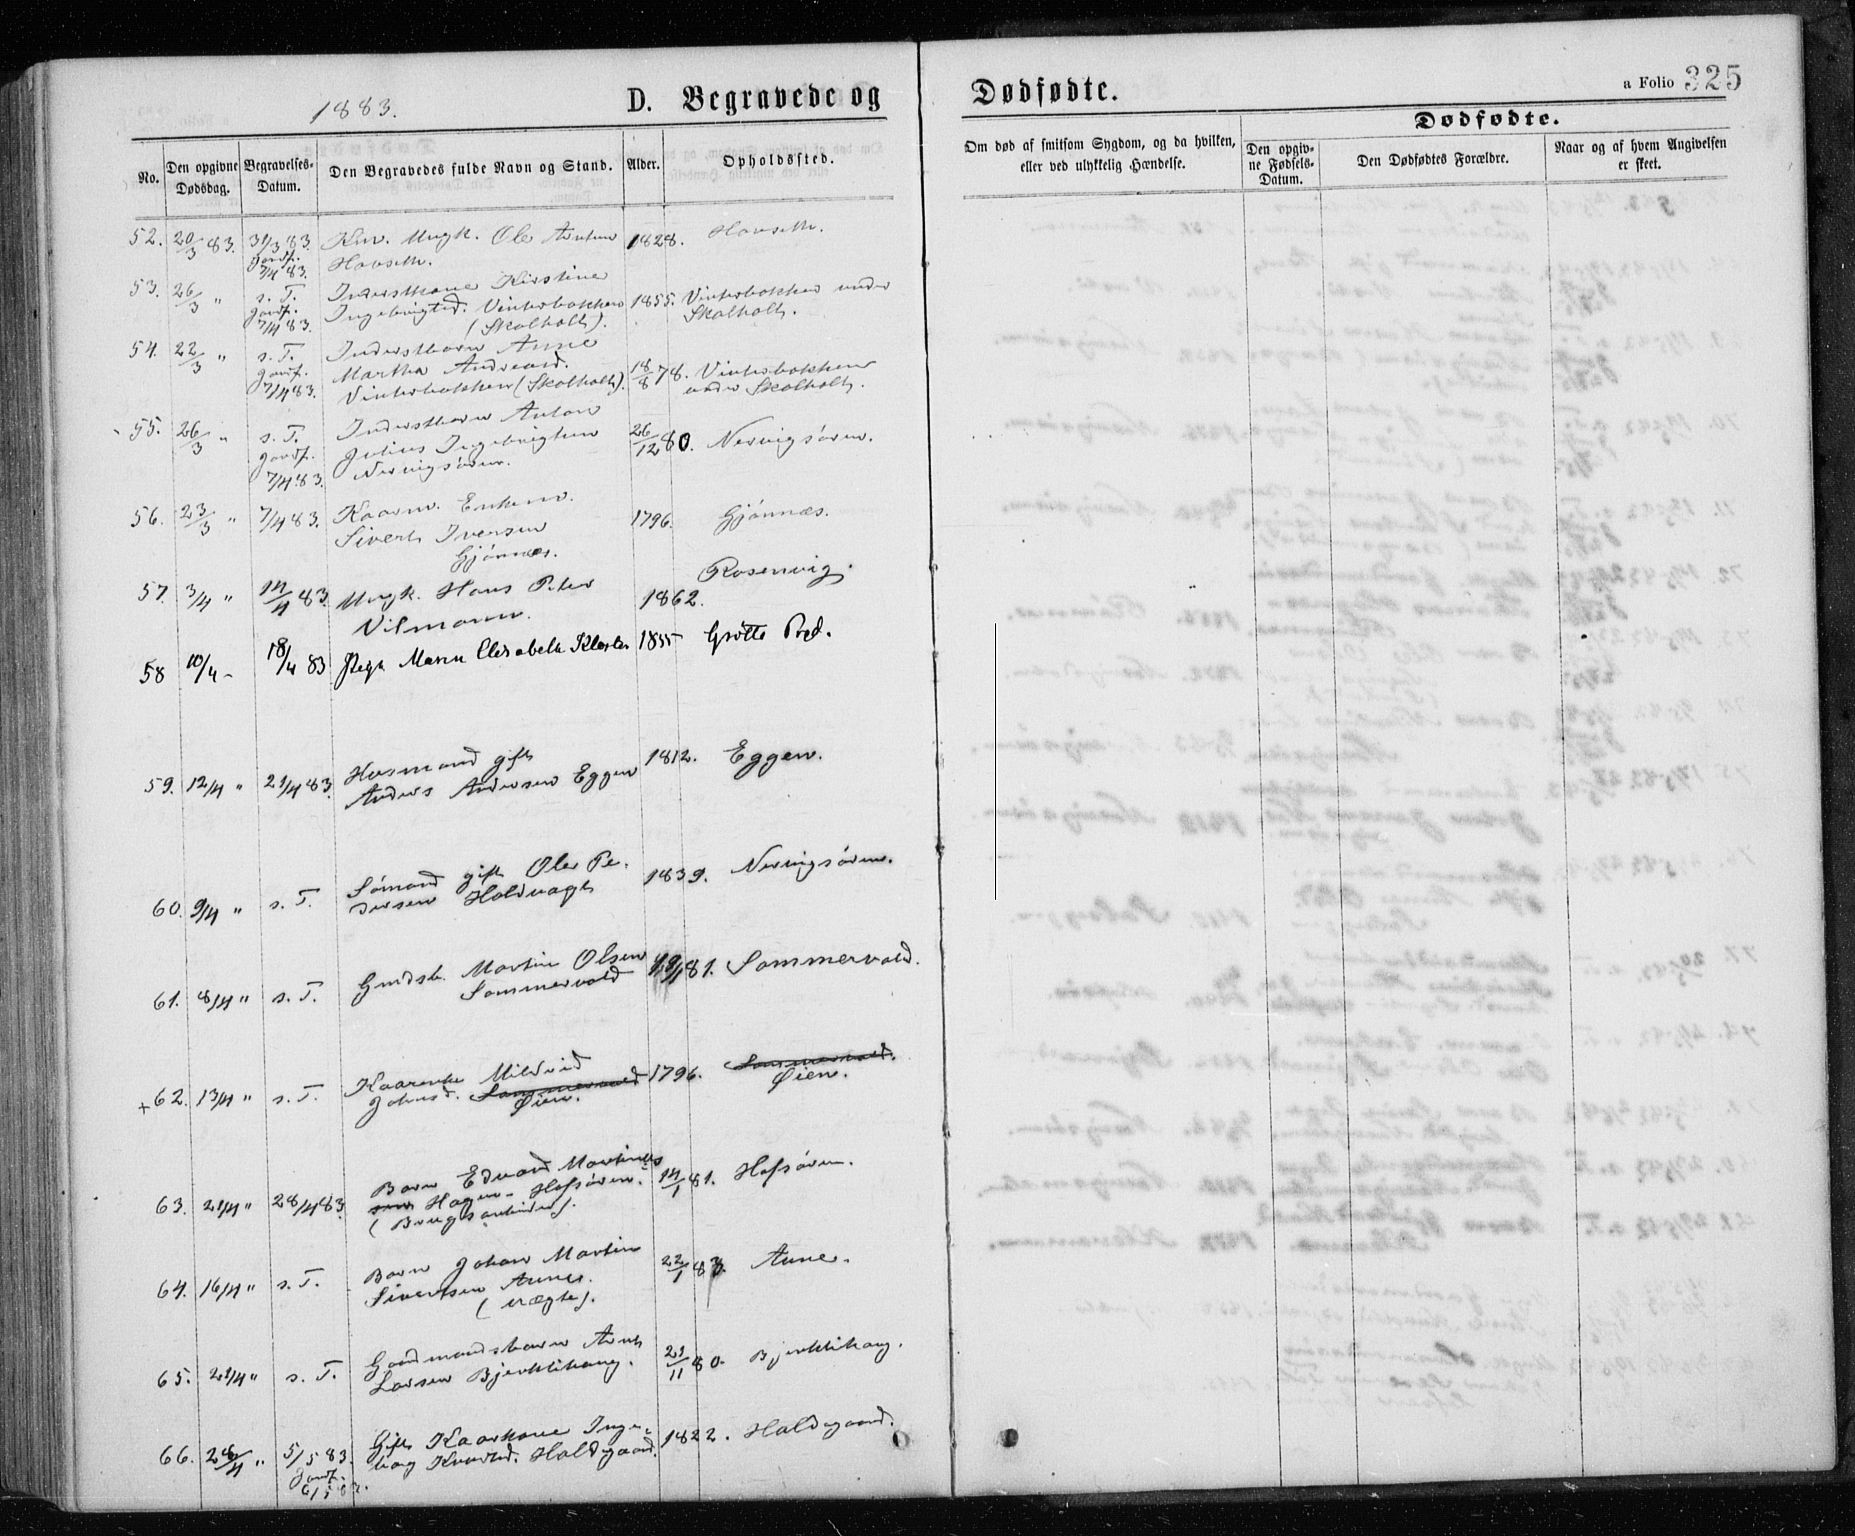 1883.
D. Begravede og
Dødfødte.
a Folio 325
No.
Den opgivne Dødsdag.
Begravelses-Datum.
Den Begravedes fulde Navn og Stand.
Alder.
Opholdssted.
Om død af smitsom Sygdom, og da hvilken,
eller ved ulykkelig Hændelse.
Dødfødte.
Den opgiv-
ne Fødsels-
Datum.
Den Dødfødtes Forældre.
Naar og af hvem Angivelsen
er skeet.
52. 20/3 83. 31/3 83. Ungk. Ole 1828. Havseth.
Jordf. Havseth.
7/4 83.
53. 26/3 " s. T. Kirstine
Jordf. Ingebrigtsd. Vinterbakken 1855. Vinterbakken under
7/4 83. (Skolholt). Skalholt.
54. 22/3 " s. T. Inderstbarn Anne
Jordf. Martha Andreasd. 18/8 78. Vinterbakken
7/4 83. Vinterbakken (Skalholt). under Skalholt.
55. 26/3 " s. T. Inderstbarn Anton
Jordf. Julius Ingebrigtsen 26/12 80. Nervigsøren.
7/4 83. Nervigsøren.
56. 23/3 " 7/4 83. Kaarm. Enkem. 1796. Gjønnæs.
Sivert Iversen
Gjønnæs.
57. 3/4 " 14/4 83. Ungk. Hans Peter 1862. Rosenvig.
Vilmann.
58 10/4 - 18/4 83 Pige Maren Elisabeth Klæster 1855 Grøtte Prd.
59. 12/4 " 21/4 83. Husmand gift 1812. Eggen.
Anders Andersen Eggen
60. 9/4 " s. T. Sømand gift Ole Pe-
dersen Holdvagt 1839. Nervigsøren.
61. 8/4 " s. T. Gmdsb. Martin Olsen 81. Sommervold.
Sommervold
+62. 13/4 " s. T. Kaarenke Mildrid 1796. Sommervold
Johnsd. Sommervold Øien.
Øien.
63. 21/4 " 28/4 83. Barn Edvard Martinus 14/1 81. Hofsøren.
sen Hagen - Hofsøren.
(Brugsarbeider).
64. 16/4 " s. T. Barn Johan Martin 22/1 83. Aune.
Sivertsen Aunes.
(uægte).
65. 21/4 " s. T. Gaardmandsbarn Arnt 21/11 80. Bjerklihaug.
Larsen Bjerklihaug.
66. 28/4 " 5/5 83. Gift Kaarkone Inge- 1822. Holdgaard.
Jordf. borg Knudsd. Holdgaard.
6/5 83.